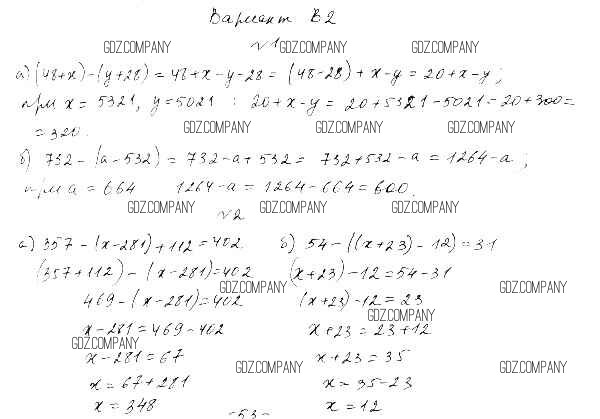 Вариант В2
GDZ.COMPANY №1 GDZ.COMPANY GDZ.COMPANY
а) (48+x)-(y+28) = 48+x-y-28 = (48-28)+x-y = 20+x-y;
при x = 5321, y=5021 : 20+x-y = 20+5321-5021=20+300=
=320.
GDZ.COMPANY GDZ.COMPANY GDZ.COMPANY
б) 732-(a-532) = 732-a+532 = 732+532-a = 1264-a;
при a = 664 1264-a = 1264-664=600.
GDZ.COMPANY GDZ.COMPANY GDZ.COMPANY
№2
а) 357-(x-281)+112=402 б) 54-((x+23)-12)=31
(357+112)-(x-281)=402 (x+23)-12=54-31
GDZ.COMPANY GDZ.COMPANY
469-(x-281)=402 (x+23)-12=23
GDZ.COMPANY
x-281=469-402 x+23=23+12
GDZ.COMPANY
x-281=67 x+23=35
GDZ.COMPANY GDZ.COMPANY
x=67+281 x=35-23
x=348 x=12
-53-